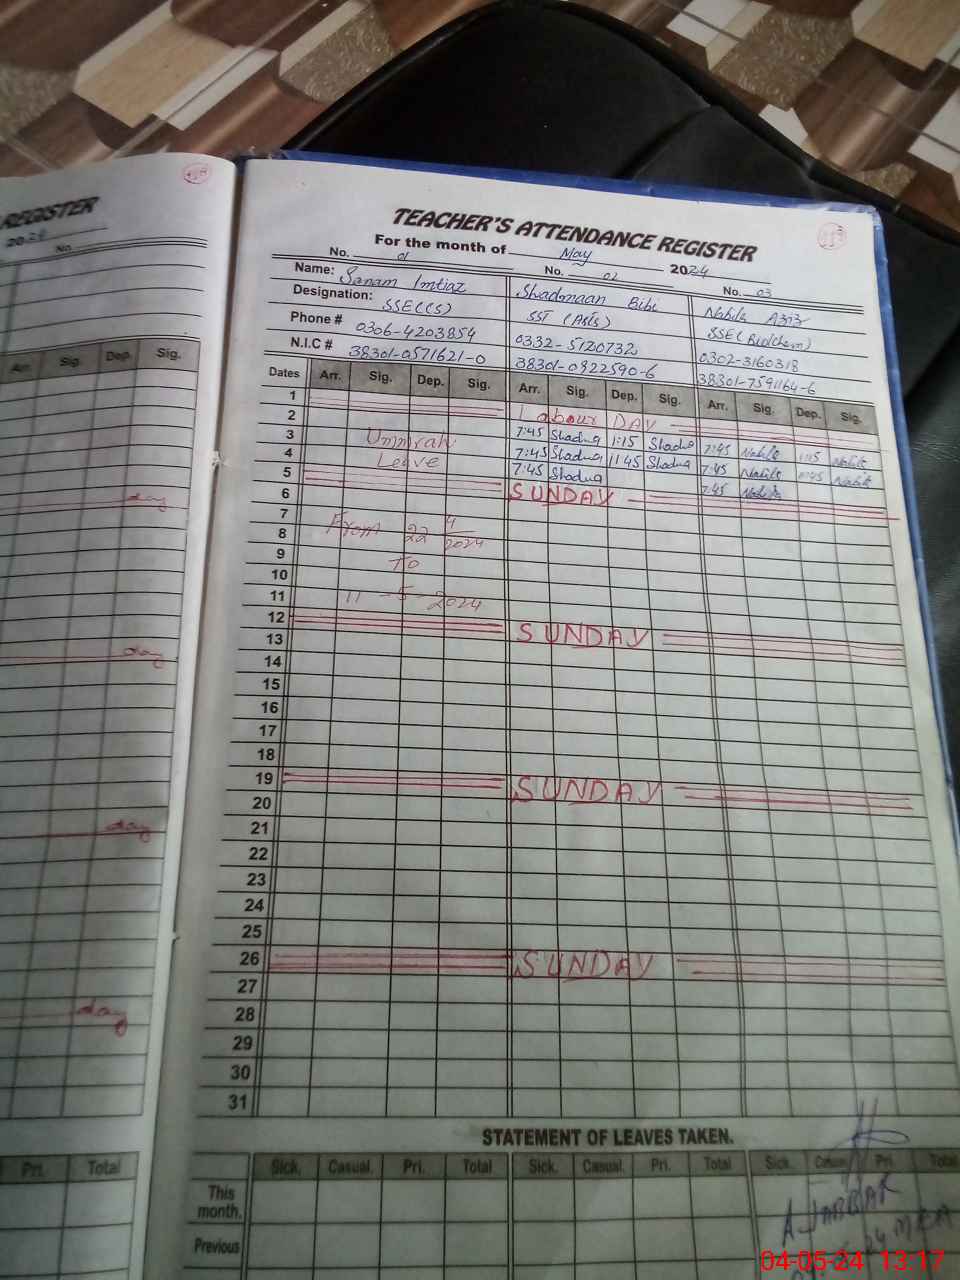 REGISTER
2024
No.
Arr. Sig. Dep. Sig.
day
day
day
day
Pri. Total
TEACHER'S ATTENDANCE REGISTER
For the month of May 2024
No. 01 No. 02 No. 03
Name: Sanam Imtiaz Shadmaan Bibi Nabila
Designation: SSE(CS) SST (Arts) SSE(
Phone # 0306-4203854 0332-5120732 0302-3160318
N.I.C # 38301-0571621-0 38301-0822590-6 38301-7591164-6
Dates Arr. Sig. Dep. Sig. Arr. Sig. Dep. Sig. Arr. Sig. Dep. Sig.
1 Labour DAY
2 7:45 1:15 7:45 1:15
3 Ummrah 7:45 11:45 7:45 11:45
4 Leave 7:45 7:45
5 SUNDAY
6
7
8 From 22 4 2024
9
10 To
11 11-5-2024
12 SUNDAY
13
14
15
16
17
18
19 SUNDAY
20
21
22
23
24
25
26 SUNDAY
27
28
29
30
31
STATEMENT OF LEAVES TAKEN.
Sick. Casual. Pri. Total Sick. Casual. Pri. Total Sick. Casual. Pri. Total
This
month.
Previous
A. JABBAR
MEA
04-05-24 13:17